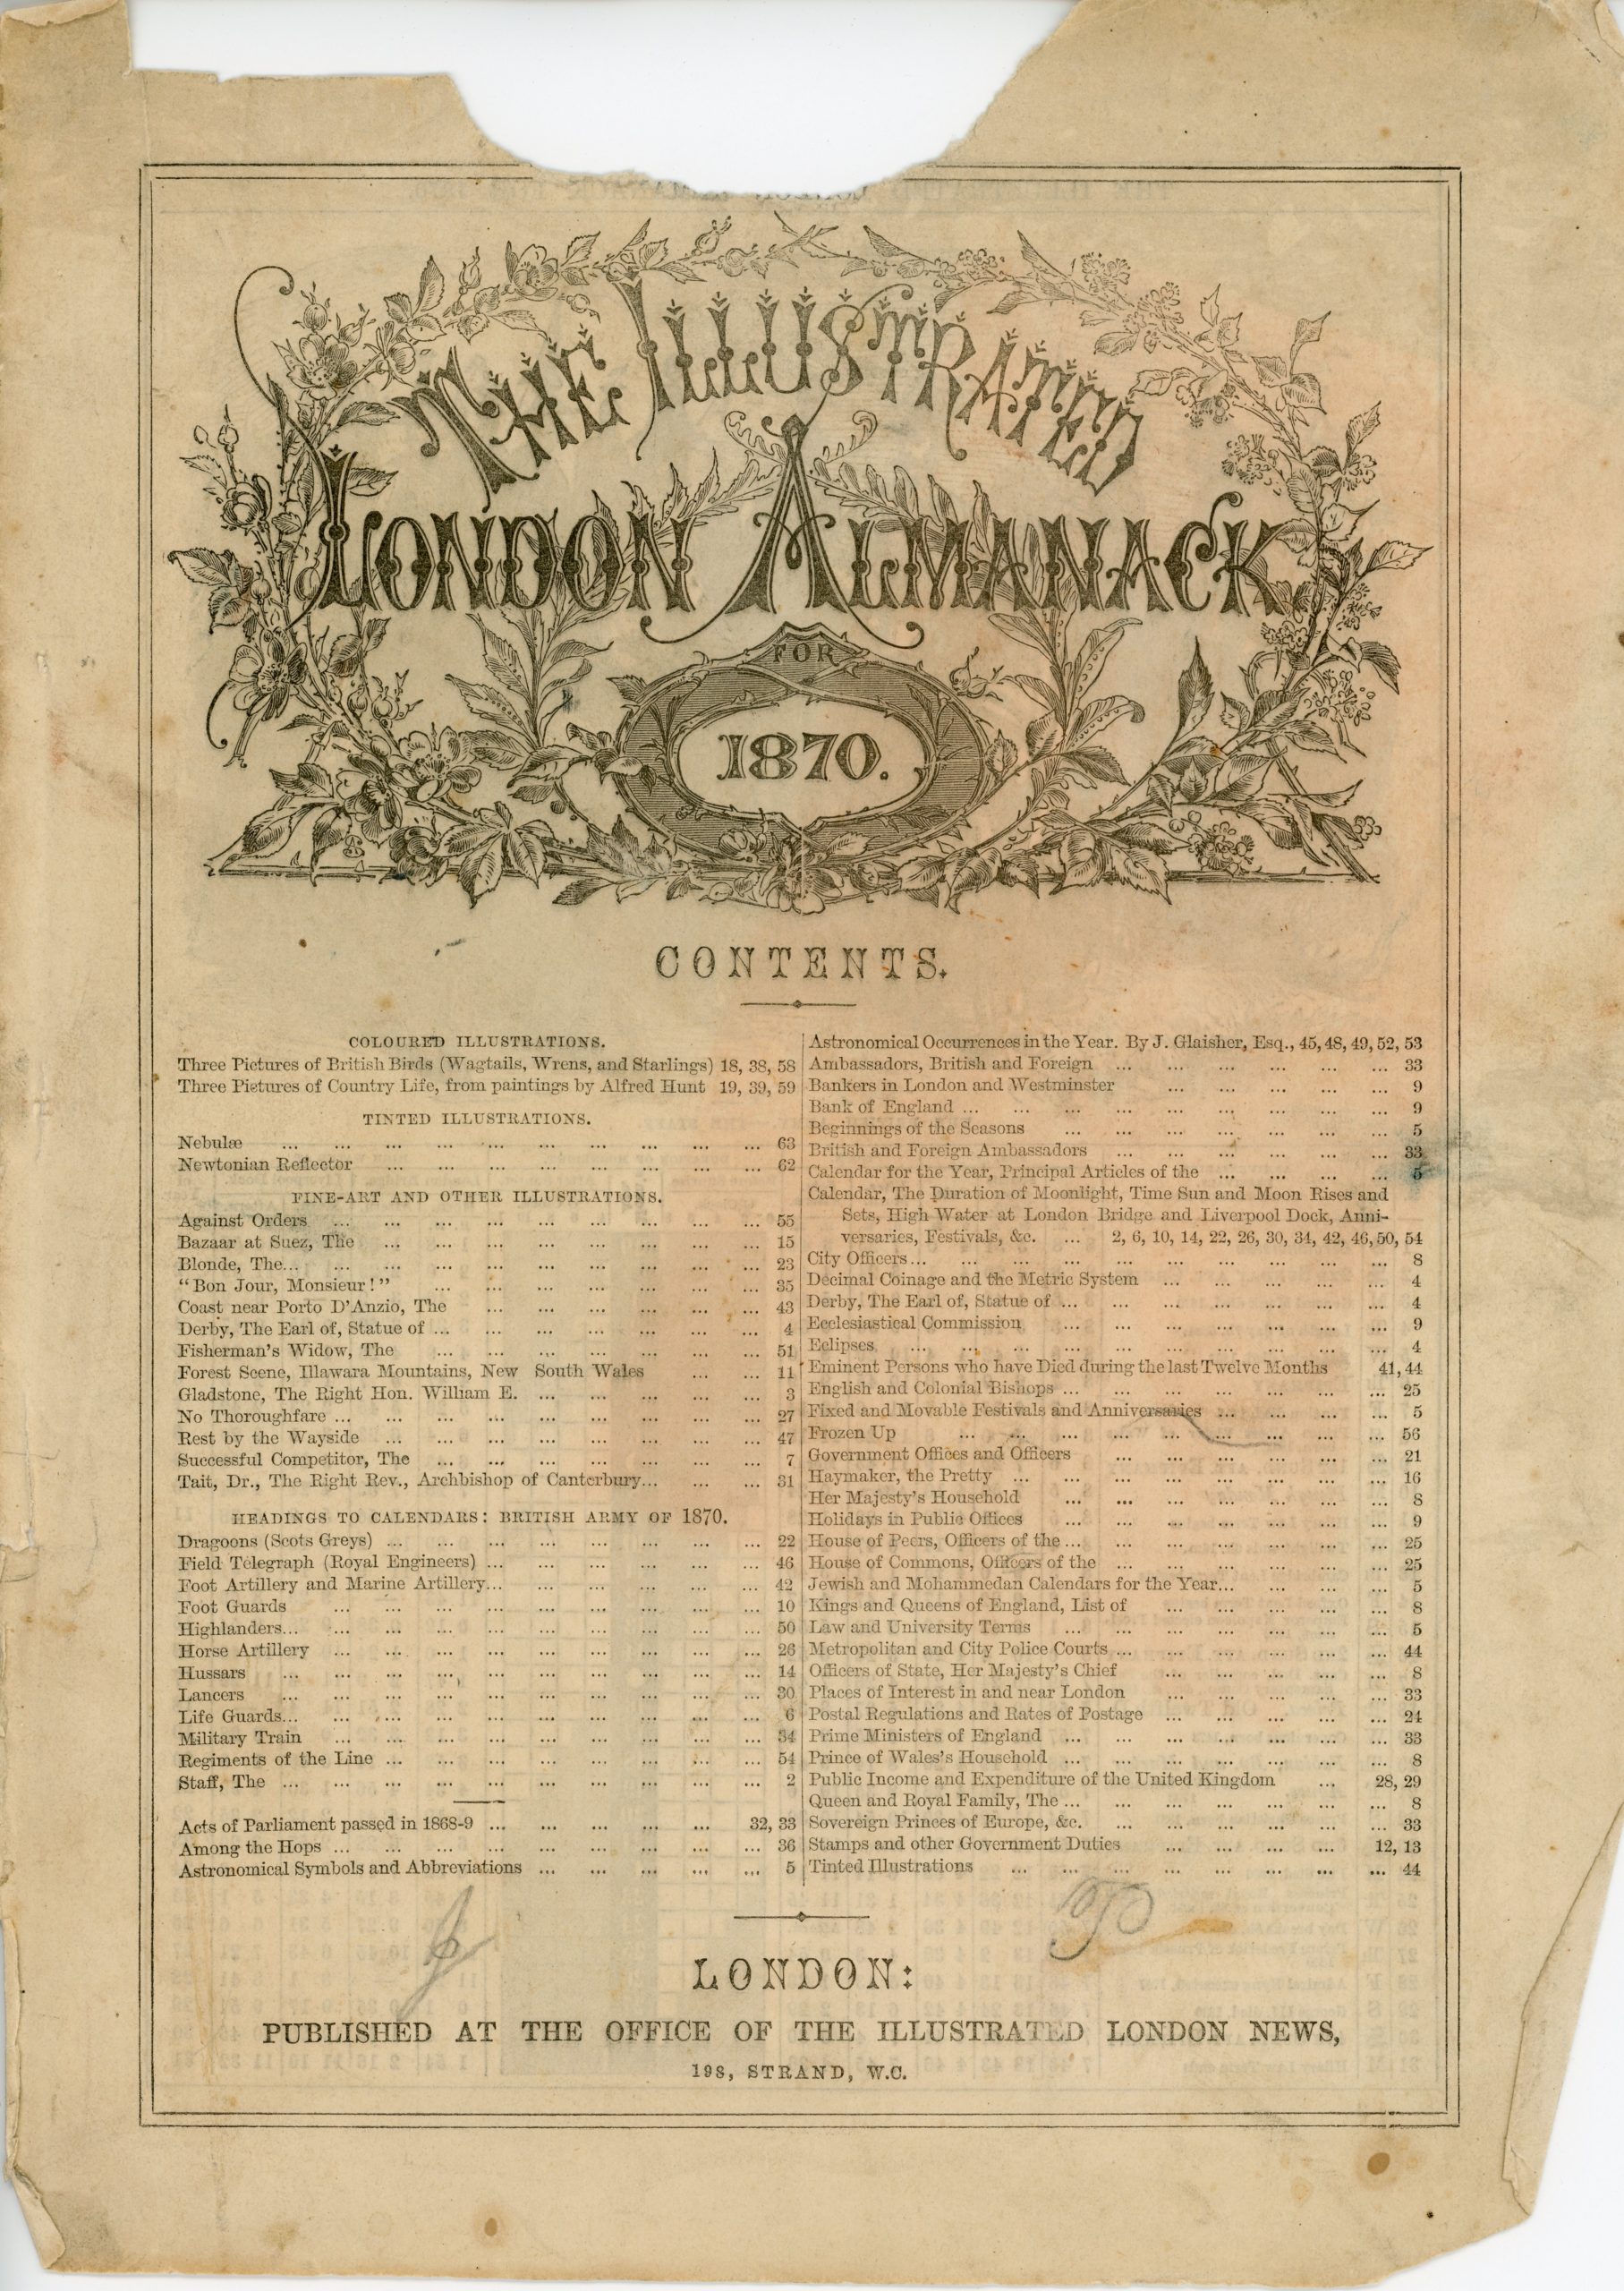 THE ILLUSTRATED
LONDON ALMANACK
FOR
1870.
CONTENTS.
COLOURED ILLUSTRATIONS.
Three Pictures of British Birds (Wagtails, Wrens, and Starlings) 18, 38, 58
Three Pictures of Country Life, from paintings by Alfred Hunt 19, 39, 59
TINTED ILLUSTRATIONS.
Nebulæ ... 63
Newtonian Reflector ... 62
FINE-ART AND OTHER ILLUSTRATIONS.
Against Orders ... 55
Bazaar at Suez, The ... 15
Blonde, The... 23
"Bon Jour, Monsieur!" ... 35
Coast near Porto D'Anzio, The ... 43
Derby, The Earl of, Statue of ... 4
Fisherman's Widow, The ... 51
Forest Scene, Illawara Mountains, New South Wales ... 11
Gladstone, The Right Hon. William E. ... 3
No Thoroughfare ... 27
Rest by the Wayside ... 47
Successful Competitor, The ... 7
Tait, Dr., The Right Rev., Archbishop of Canterbury... 31
HEADINGS TO CALENDARS: BRITISH ARMY OF 1870.
Dragoons (Scots Greys) ... 22
Field Telegraph (Royal Engineers) ... 46
Foot Artillery and Marine Artillery... 42
Foot Guards ... 10
Highlanders... 50
Horse Artillery ... 26
Hussars ... 14
Lancers ... 30
Life Guards... 6
Military Train ... 34
Regiments of the Line ... 54
Staff, The ... 2
Acts of Parliament passed in 1868-9 ... 32, 33
Among the Hops ... 36
Astronomical Symbols and Abbreviations ... 5
Astronomical Occurrences in the Year. By J. Glaisher, Esq., 45, 48, 49, 52, 53
Ambassadors, British and Foreign ... 33
Bankers in London and Westminster ... 9
Bank of England ... 9
Beginnings of the Seasons ... 5
British and Foreign Ambassadors ... 33
Calendar for the Year, Principal Articles of the ... 5
Calendar, The Duration of Moonlight, Time Sun and Moon Rises and
Sets, High Water at London Bridge and Liverpool Dock, Anni-
versaries, Festivals, &c. ... 2, 6, 10, 14, 22, 26, 30, 34, 42, 46, 50, 54
City Officers... 8
Decimal Coinage and the Metric System ... 4
Derby, The Earl of, Statue of ... 4
Ecclesiastical Commission ... 9
Eclipses ... 4
Eminent Persons who have Died during the last Twelve Months 41, 44
English and Colonial Bishops ... 25
Fixed and Movable Festivals and Anniversaries ... 5
Frozen Up ... 56
Government Offices and Officers ... 21
Haymaker, the Pretty ... 16
Her Majesty's Household ... 8
Holidays in Public Offices ... 9
House of Peers, Officers of the ... 25
House of Commons, Officers of the ... 25
Jewish and Mohammedan Calendars for the Year... 5
Kings and Queens of England, List of ... 8
Law and University Terms ... 5
Metropolitan and City Police Courts ... 44
Officers of State, Her Majesty's Chief ... 8
Places of Interest in and near London ... 33
Postal Regulations and Rates of Postage ... 24
Prime Ministers of England ... 33
Prince of Wales's Household ... 8
Public Income and Expenditure of the United Kingdom ... 28, 29
Queen and Royal Family, The ... 8
Sovereign Princes of Europe, &c. ... 33
Stamps and other Government Duties ... 12, 13
Tinted Illustrations ... 44
LONDON:
PUBLISHED AT THE OFFICE OF THE ILLUSTRATED LONDON NEWS,
198, STRAND, W.C.